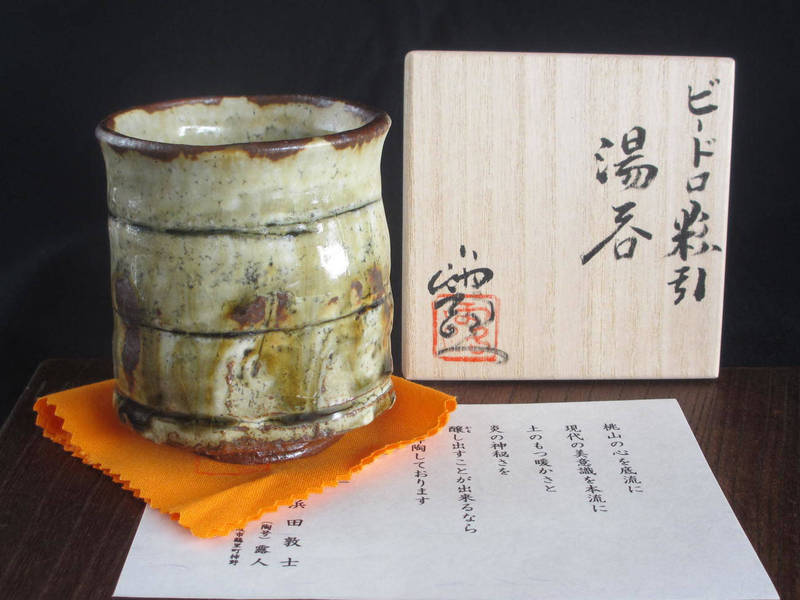 ビードロ粉引
湯呑
桃山の心を底流に
現代の美意識を本流に
土のもつ暖かさと
炎の神秘さを
醸し出すことが出来るなら
陶しております
浜田敦士
(陶号)露人